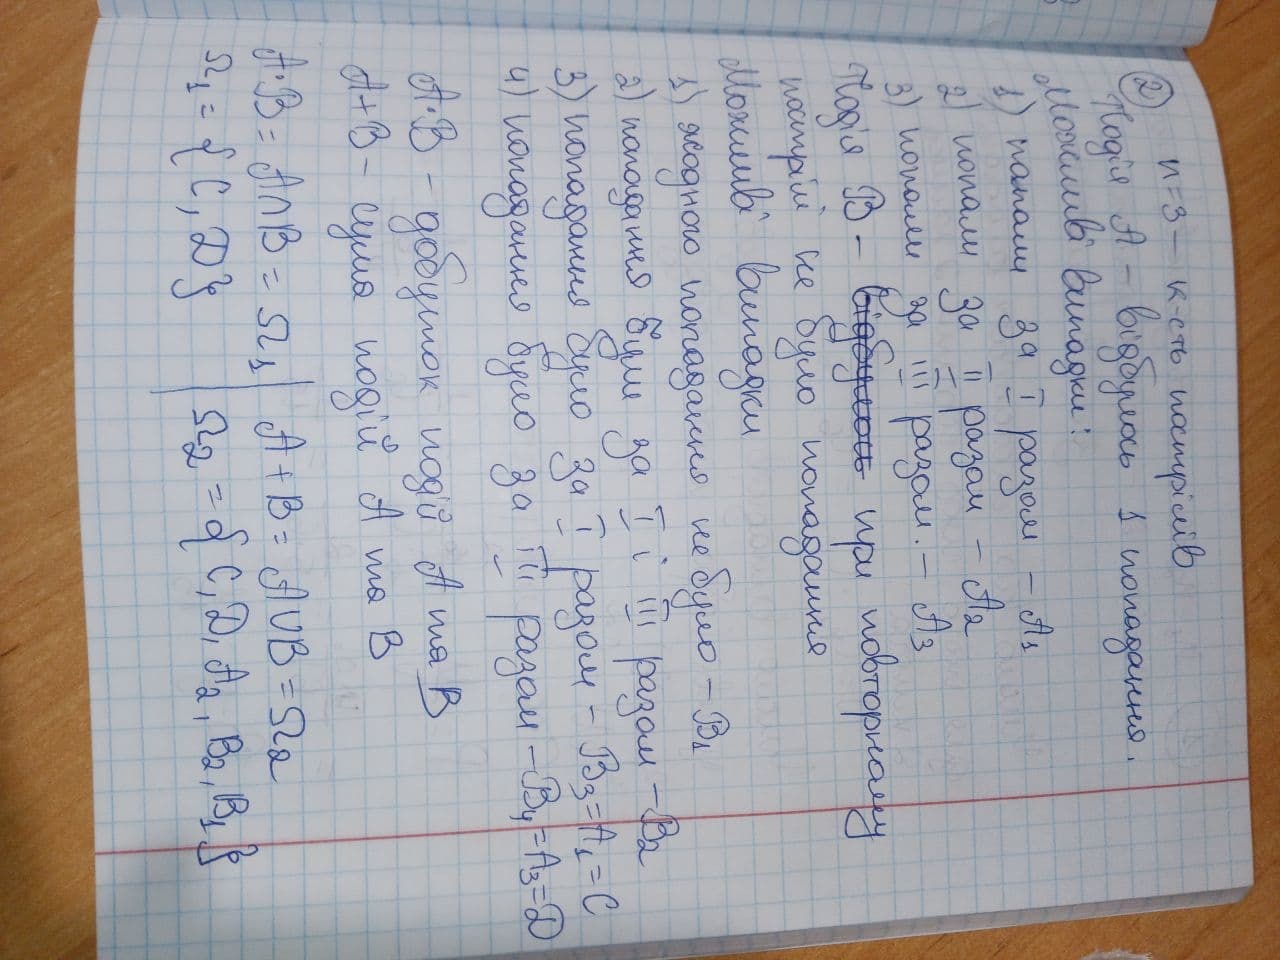 ② n=3 – к-сть пострілів
Подія А – відбулось 1 попадання.
Можливі випадки:
1) попали за I разом – A₁
2) попали за II разом – A₂
3) попали за III разом. – A₃
Подія B – відбулось при повторному
пострілі не було попадання
Можливі випадки
1) жодного попадання не було – B₁
2) попадання були за I і III разом – B₂
3) попадання було за I разом – B₃ = A₁ = C
4) попадання було за III разом – B₄ = A₃ = D
A·B – добуток подій A та B
A+B – сума подій A та B
A·B = A∩B = Ω₁
Ω₁ = {C, D}
A+B = A∪B = Ω₂
Ω₂ = {C, D, A₂, B₂, B₁}